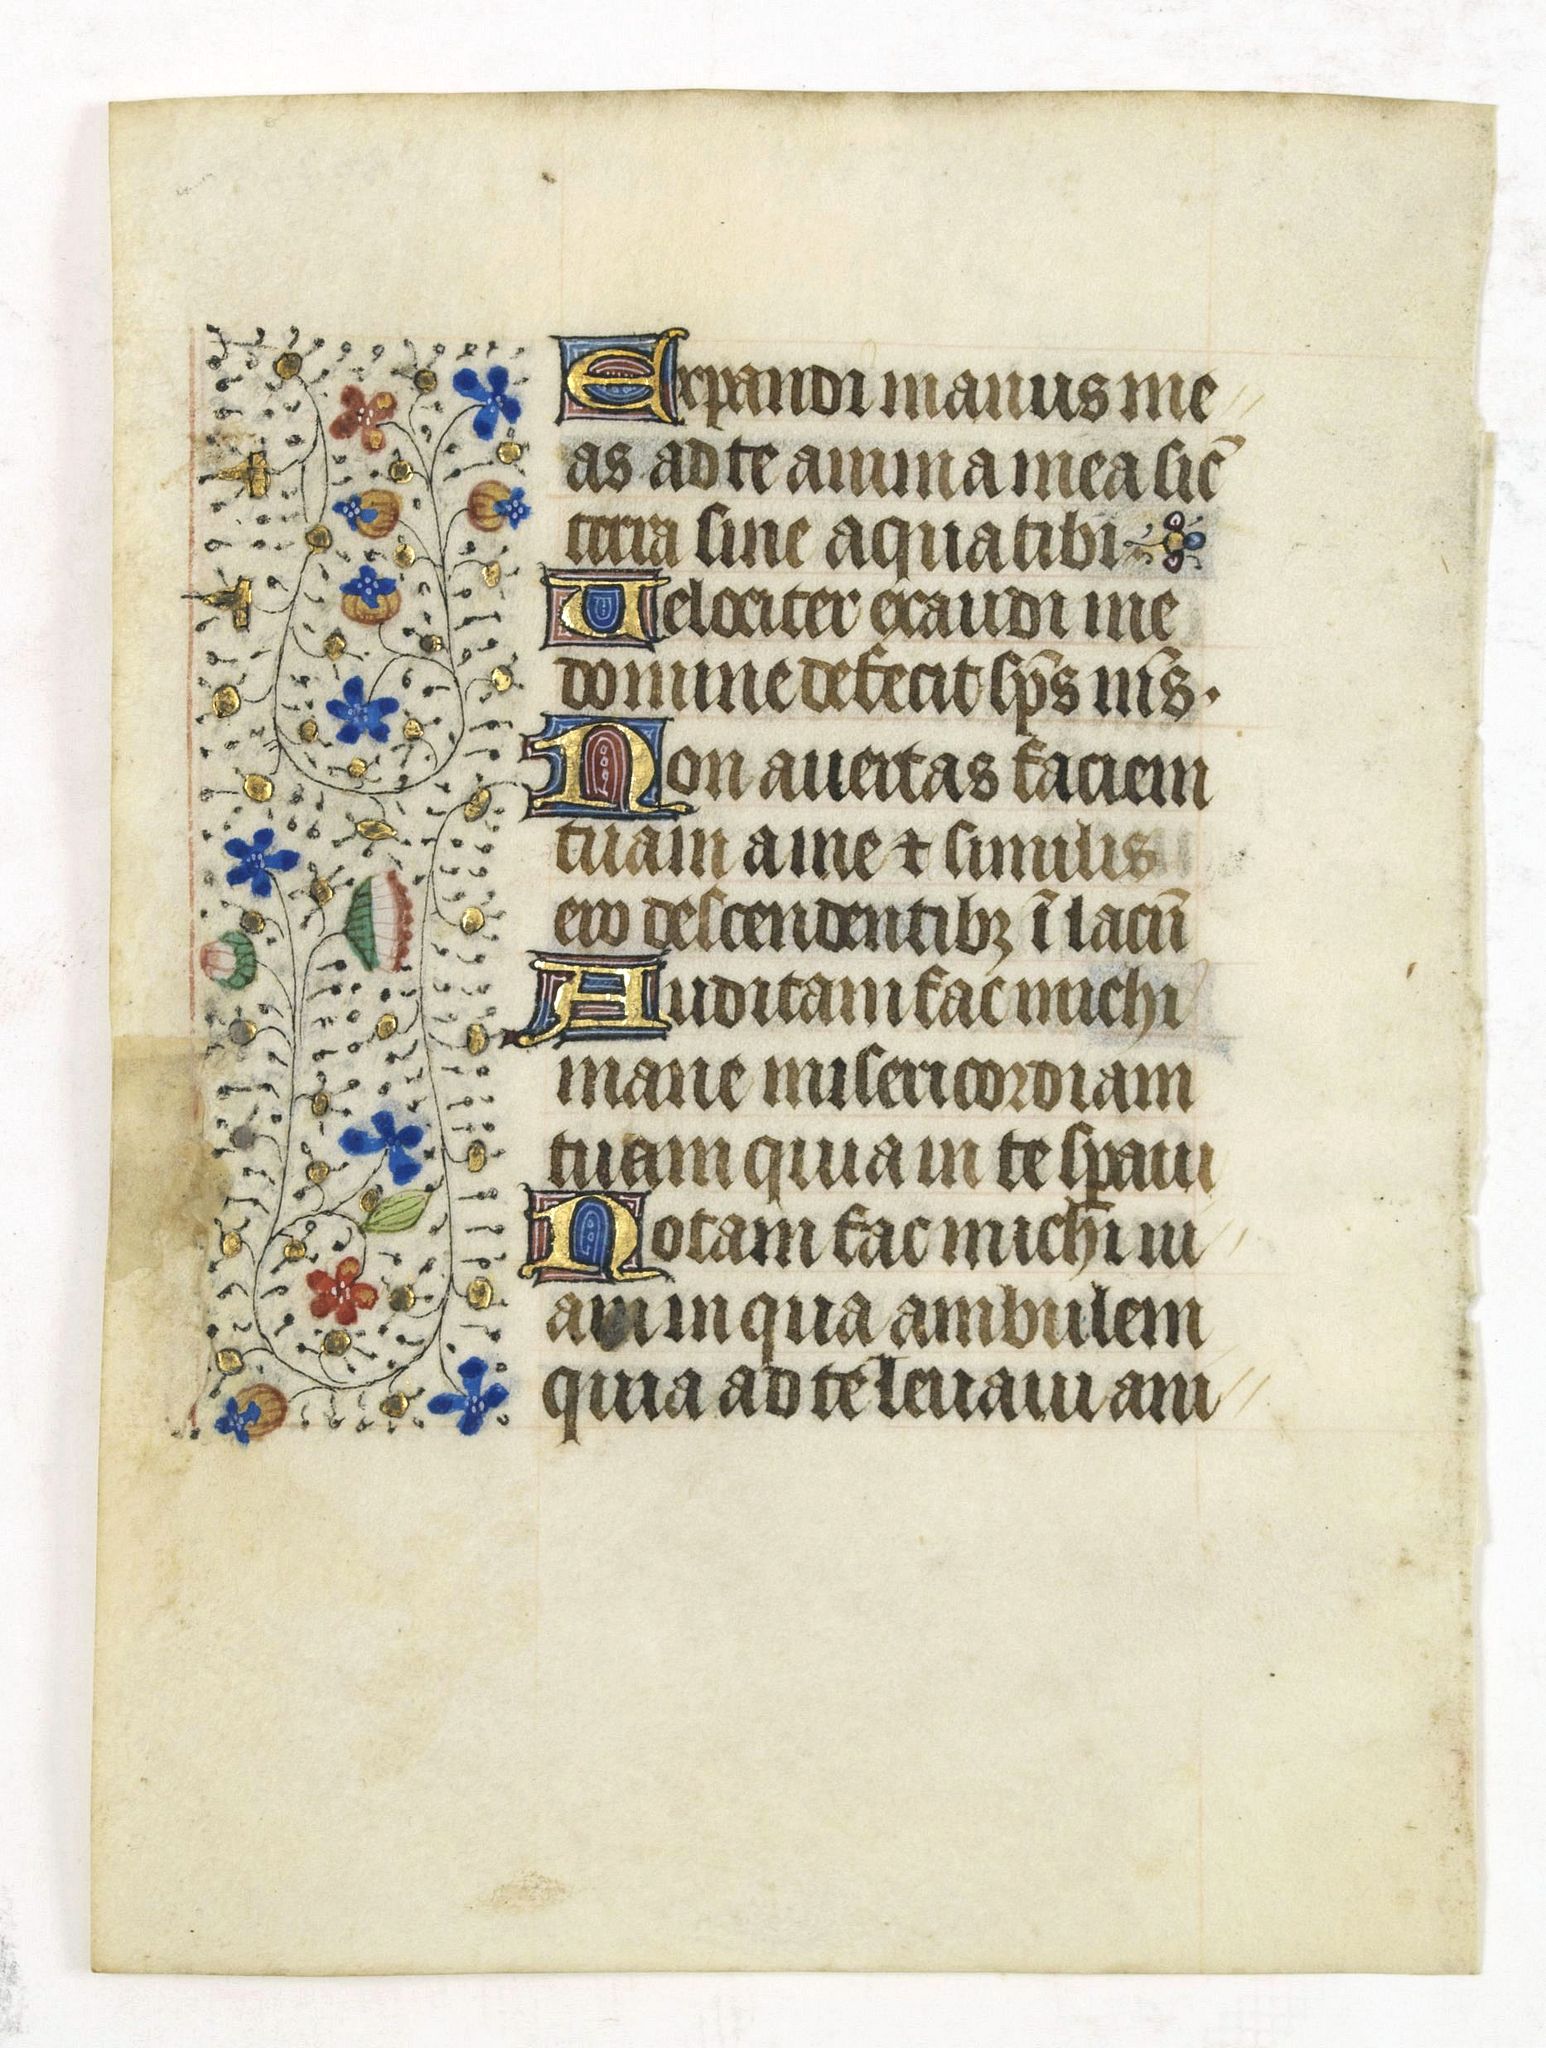 Expandi manus me
as ad te anima mea sic̄
terra sine aqua tibi
Uelociter exaudi me
domine defecit sp̄s m̄s.
Non auertas faciem
tuam a me ⁊ similis
ero descendentibꝫ ī lacū
Auditam fac michi
mane misericordiam
tuam quia in te sꝑaui
Notam fac michi ui
am in qua ambulem
quia ad te leuaui ani